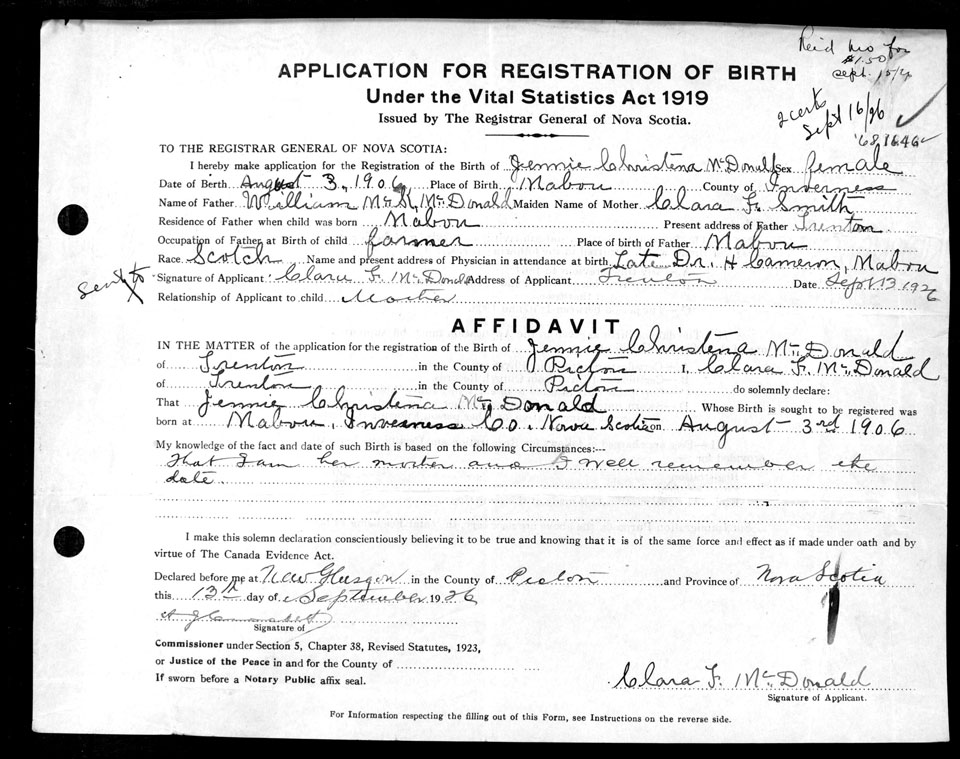 Rec'd M.O. for
$1.50
Sept. 15/26
2 certs
Sept 16/26
APPLICATION FOR REGISTRATION OF BIRTH
Under the Vital Statistics Act 1919
Issued by The Registrar General of Nova Scotia.
TO THE REGISTRAR GENERAL OF NOVA SCOTIA:
I hereby make application for the Registration of the Birth of Jennie Christena McDonald Sex female
Date of Birth August 3, 1906 Place of Birth Mabou County of Inverness
Name of Father William McDonald Maiden Name of Mother Clara F. Smith
Residence of Father when child was born Mabou Present address of Father Trenton
Occupation of Father at Birth of child farmer Place of birth of Father Mabou
Race. Scotch Name and present address of Physician in attendance at birth Late Dr. H Cameron, Mabou
Signature of Applicant Clara F. McDonald Address of Applicant Trenton Date Sept 13 1926
Relationship of Applicant to child Mother
AFFIDAVIT
IN THE MATTER of the application for the registration of the Birth of Jennie Christena McDonald
of Trenton in the County of Pictou I, Clara F. McDonald
of Trenton in the County of Pictou do solemnly declare:
That Jennie Christena McDonald Whose Birth is sought to be registered was
born at Mabou, Inverness Co. Nova Scotia on August 3rd 1906
My knowledge of the fact and date of such Birth is based on the following Circumstances:—
That I am her mother and I well remember the
date.
I make this solemn declaration conscientiously believing it to be true and knowing that it is of the same force and effect as if made under oath and by
virtue of The Canada Evidence Act.
Declared before me at New Glasgow in the County of Pictou and Province of Nova Scotia
this 13th day of September 1926
Signature of
Commissioner under Section 5, Chapter 38, Revised Statutes, 1923,
or Justice of the Peace in and for the County of
If sworn before a Notary Public affix seal.
Clara F. McDonald
Signature of Applicant.
For Information respecting the filling out of this Form, see Instructions on the reverse side.